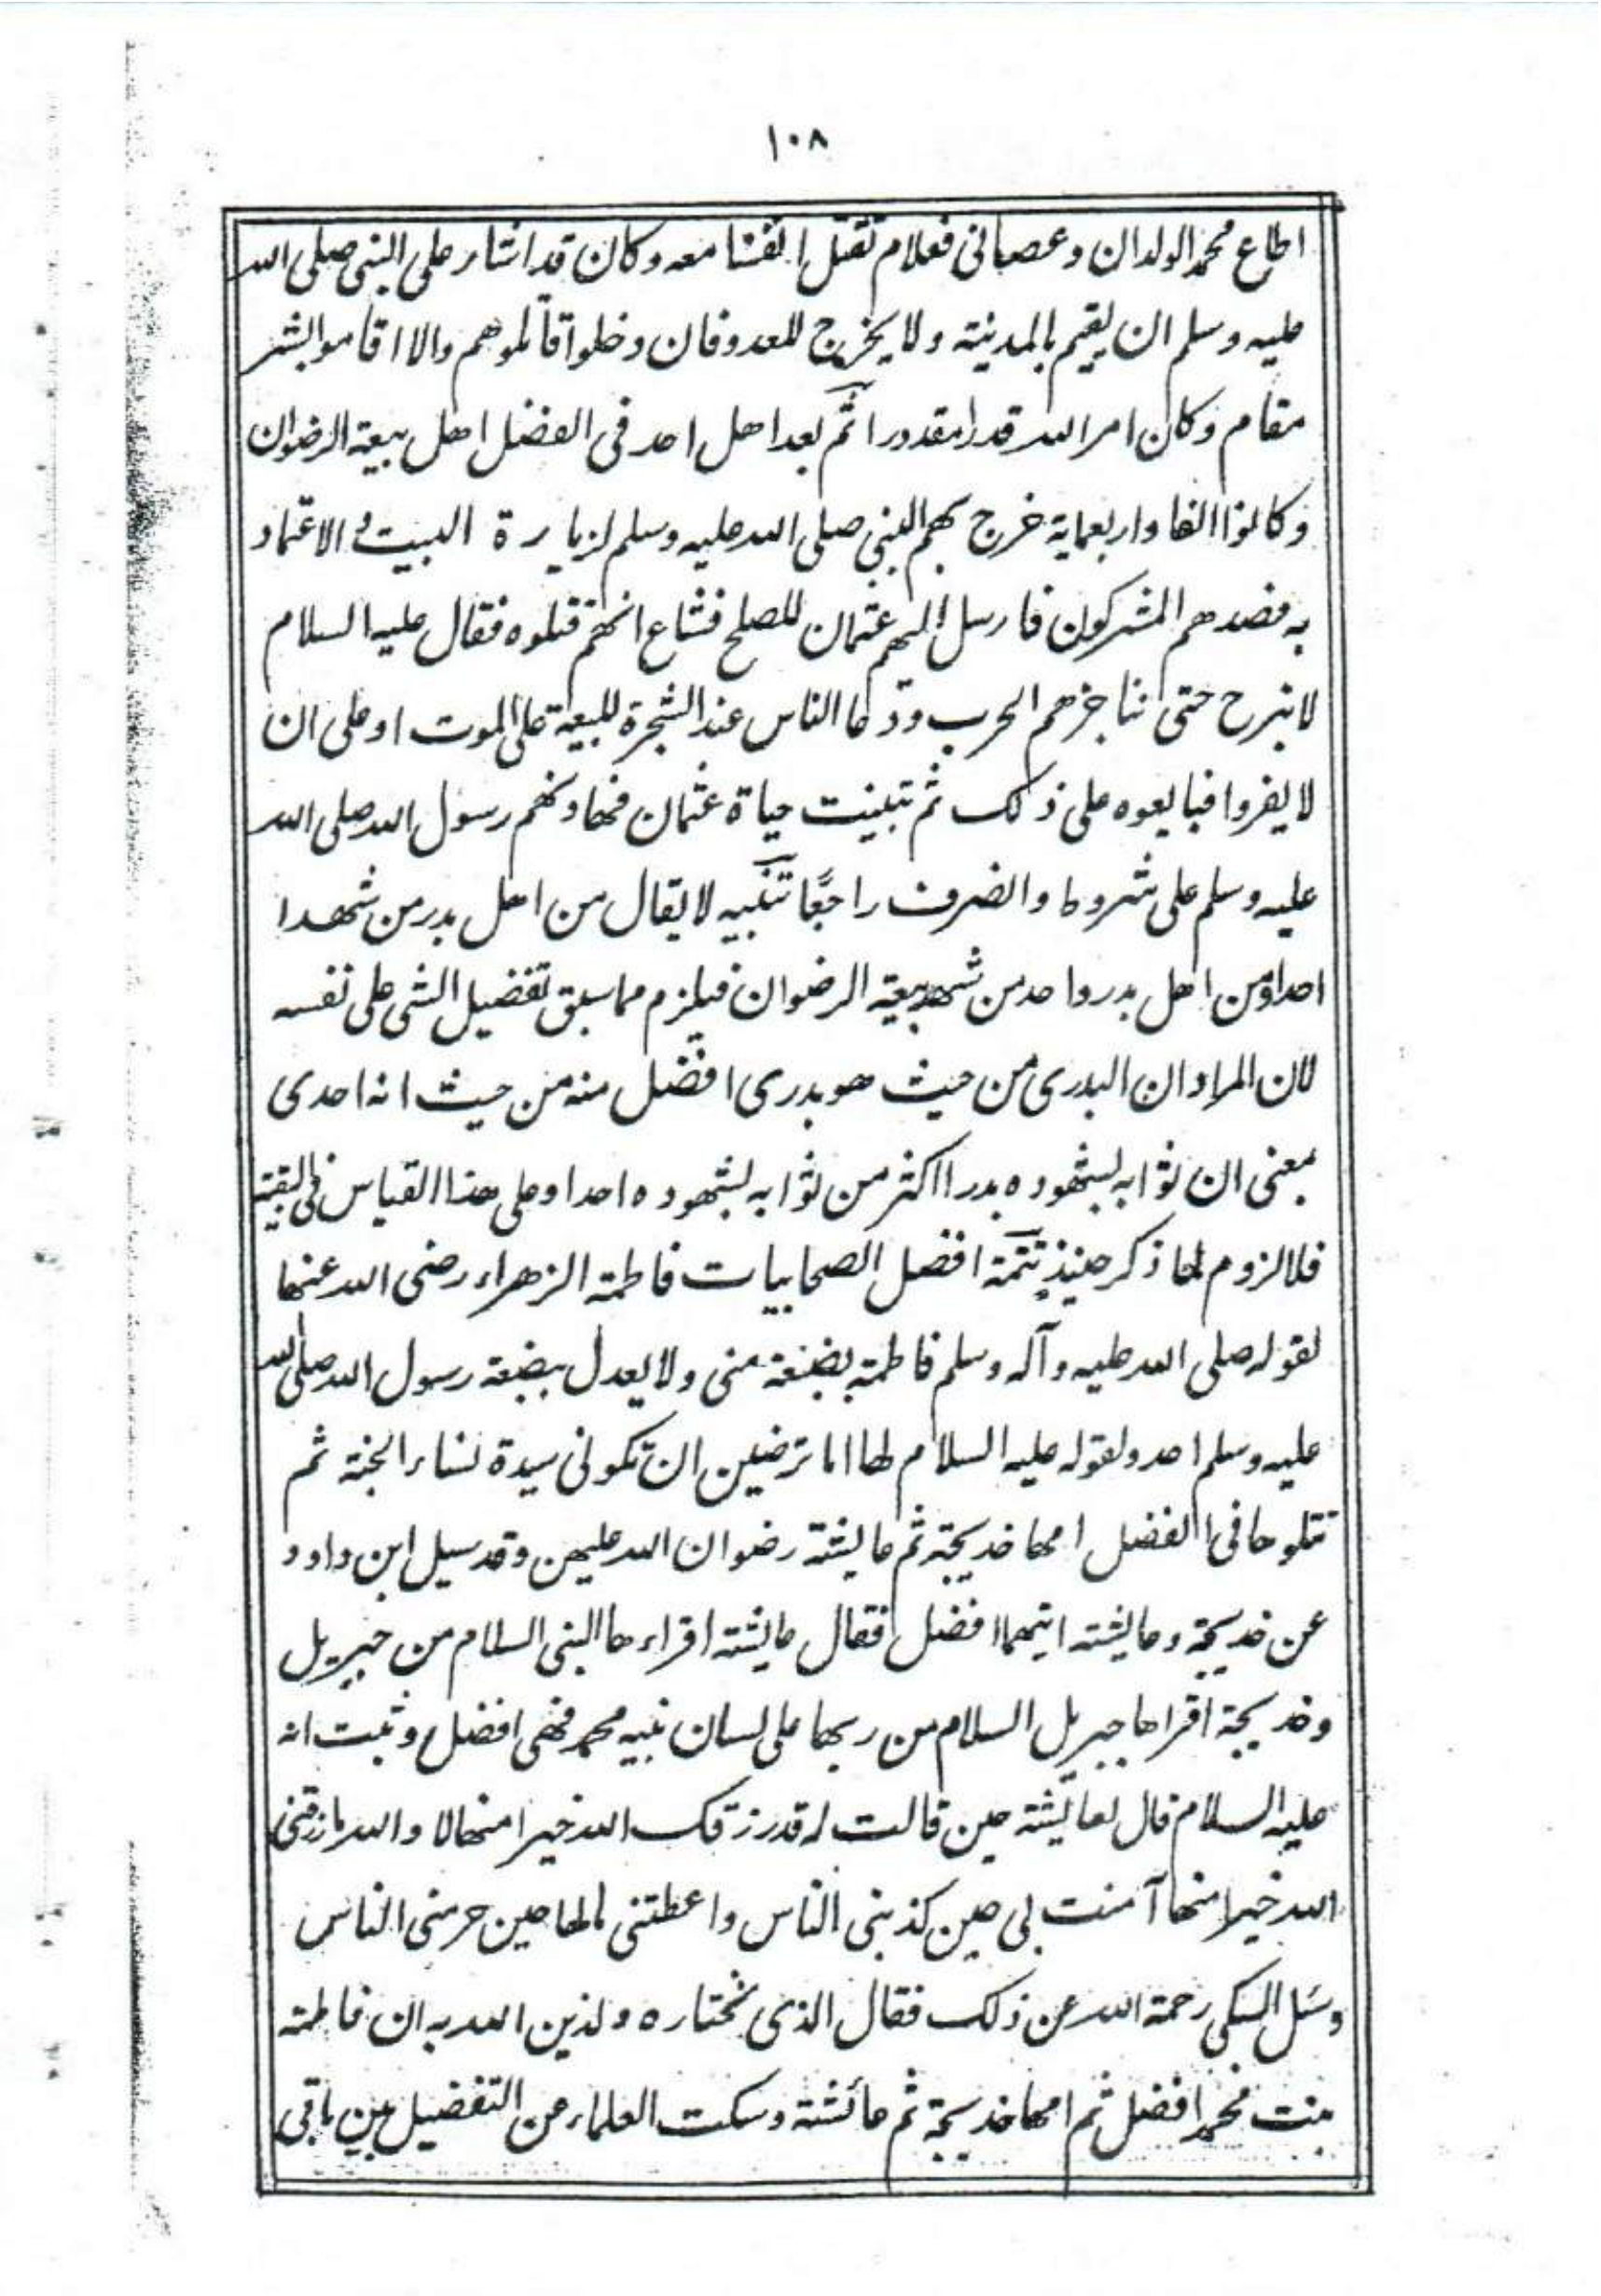 ١٠٨
اطاع محمد الولدان وعصانى فعلام نقتل انفسنا معه وكان قد اشار على النبى صلى الله
عليه وسلم ان يقيم بالمدينة ولا يخرج للعدو فان دخلوا قاتلوهم والا اقاموا بشر
مقام وكان امر الله قدرا مقدورا ثم بعد اهل احد فى الفضل اهل بيعة الرضوان
وكانوا الفا واربعماية خرج بهم النبى صلى الله عليه وسلم لزيارة البيت والاعتماد
به فصدهم المشركون فارسل اليهم عثمان للصلح فشاع انهم قتلوه فقال عليه السلام
لا نبرح حتى نناجزهم الحرب ودعا الناس عند الشجرة للبيعة على الموت او على ان
لا يفروا فبايعوه على ذلك ثم تبينت حياة عثمان فهادنهم رسول الله صلى الله
عليه وسلم على شروط وانصرف راجعًا تنبيه لا يقال من اهل بدر من شهد ا
احدا ومن اهل بدر واحد من شهد بيعة الرضوان فيلزم مما سبق تفضيل الشى على نفسه
لان المراد ان البدرى من حيث هو بدرى افضل منه من حيث انه احدى
بمعنى ان ثوابه لشهوده بدرا اكثر من ثوابه لشهوده احدا وعلى هذا القياس فى البقية
فلا لزوم لما ذكر حينئذ تتمة افضل الصحابيات فاطمة الزهراء رضى الله عنها
لقوله صلى الله عليه وآله وسلم فاطمة بضعة منى ولا يعدل ببضعة رسول الله صلى الله
عليه وسلم احد ولقوله عليه السلام لها اما ترضين ان تكونى سيدة نساء الجنة ثم
تتلوها فى الفضل امها خديجة ثم عايشة رضوان الله عليهن وقد سيل ابن داود
عن خديجة وعايشة ايتهما افضل فقال عايشة اقراءها النبى السلام من جبريل
وخديجة اقراها جبريل السلام من ربها على لسان نبيه محمد فهى افضل وثبت انه
عليه السلام قال لعايشة حين قالت له قد رزقك الله خيرا منها لا والله ما رزقنى
الله خيرا منها آمنت بى حين كذبنى الناس واعطتنى مالها حين حرمنى الناس
وسئل السبكى رحمة الله عن ذلك فقال الذى نختاره وندين الله به ان فاطمة
بنت محمد افضل ثم امها خديجة ثم عائشة وسكت العلماء عن التفضيل بين باقى